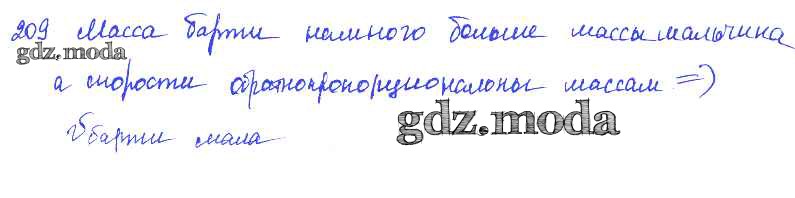 209 Масса баржи намного больше массы мальчика
gdz.moda
а скорости обратнопропорциональны массам =>
υ баржи мала
gdz.moda